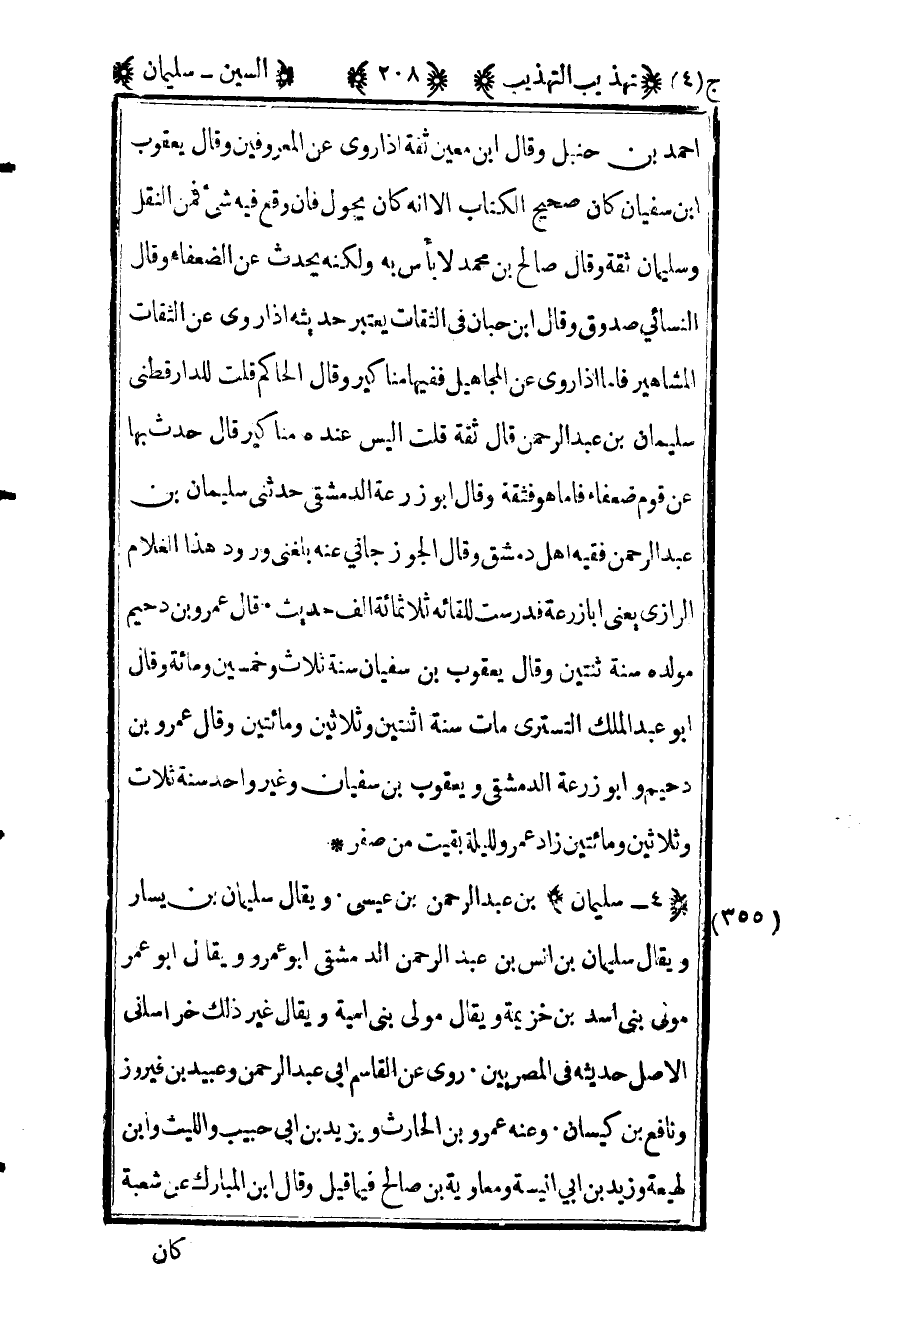 ج(٤) ﴿تهذيب التهذيب﴾ ﴿٢٠٨﴾ ﴿السين - سليمان﴾
احمد بن حنبل وقال ابن معين ثقة اذا روى عن المعروفين وقال يعقوب
ابن سفيان كان صحيح الكتاب الا انه كان يحول فان وقع فيه شئ فمن النقل
وسليمان ثقة وقال صالح بن محمد لا بأس به ولكنه يحدث عن الضعفاء وقال
النسائي صدوق وقال ابن حبان فى الثقات يعتبر حديثه اذا روى عن الثقات
المشاهير فاما اذا روى عن المجاهيل ففيها مناكير وقال الحاكم قلت للدارقطنى
سليمان بن عبد الرحمن قال ثقة قلت اليس عنده مناكير قال حدث بها
عن قوم ضعفاء فاما هو فثقة وقال ابو زرعة الدمشقي حدثنى سليمان بن
عبد الرحمن فقيه اهل دمشق وقال الجوزجاني عنه بلغنى ورود هذا الغلام
الرازى يعنى ابا زرعة فدرست للقائه ثلاثمائة الف حديث · قال عمرو بن دحيم
مولده سنة ثنتين وقال يعقوب بن سفيان سنة ثلاث وخمسين ومائة وقال
ابو عبد الملك التسترى مات سنة اثنتين وثلاثين ومائتين وقال عمرو بن
دحيم و ابو زرعة الدمشقي و يعقوب بن سفيان وغير واحد سنة ثلاث
وثلاثين ومائتين زاد عمرو لليلة بقيت من صفر *
﴿٤ - سليمان﴾ بن عبد الرحمن بن عيسى · ويقال سليمان بن يسار
(٣٥٥)
ويقال سليمان بن انس بن عبد الرحمن الدمشقى ابو عمرو ويقال ابو عمر
مولى بنى اسد بن خزيمة ويقال مولى بنى امية ويقال غير ذلك خراسانى
الاصل حديثه فى المصريين · روى عن القاسم ابى عبد الرحمن وعبيد بن فيروز
ونافع بن كيسان · وعنه عمرو بن الحارث ويزيد بن ابى حبيب والليث وابن
لهيعة وزيد بن ابي انيسة ومعاوية بن صالح فيما قيل وقال ابن المبارك عن شعبة
كان